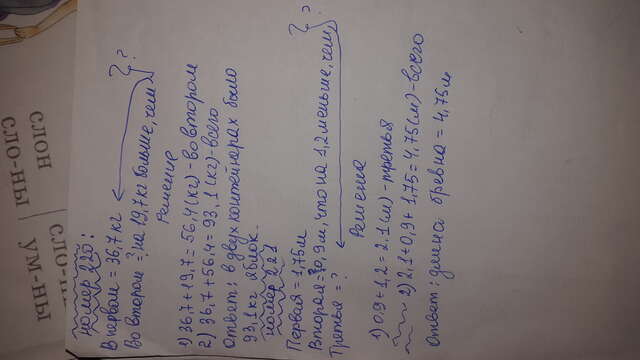 номер 220:
В первом = 36,7 кг
Во втором = ? на 19,7 кг больше, чем
?
Решение
1) 36,7 + 19,7 = 56,4 (кг) - во втором
2) 36,7 + 56,4 = 93,1 (кг) - всего
Ответ: в двух контейнерах было
93,1 кг яблок.
номер 221
Первая = 1,75 м
Вторая = 0,9 м, что на 1,2 меньше, чем
Третья = ?
?
Решение
1) 0,9 + 1,2 = 2,1 (м) - третья
2) 2,1 + 0,9 + 1,75 = 4,75 (м) - всего
Ответ: длина бревна = 4,75 м
СЛОН
СЛО-НЫ
СЛО-
УМ-НЫ